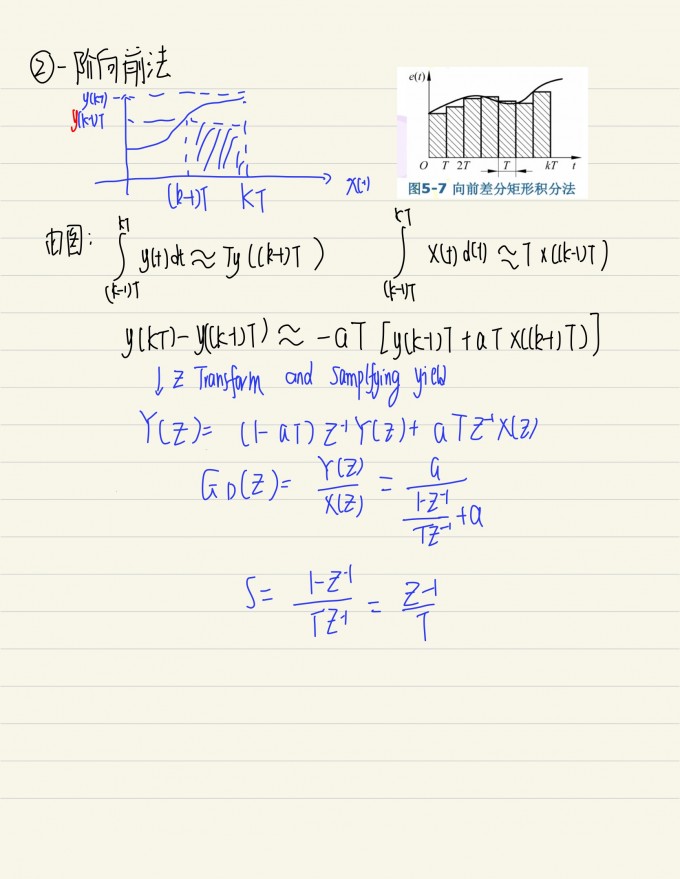 ②一阶向前法
y(kT)
y(k-1)T
(k-1)T KT X(t)
e(t)
O T 2T T kT t
图5-7 向前差分矩形积分法
由图: ∫_{(k-1)T}^{KT} y(t)dt ≈ Ty((k-1)T) ∫_{(k-1)T}^{KT} X(t)d(t) ≈ T x((k-1)T)
y(kT)-y((k-1)T) ≈ -aT [y(k-1)T + aT X((k-1)T)]
↓ Z Transform and Samplfying yield
Y(Z)= (1-aT) Z⁻¹Y(Z)+ aTZ⁻¹X(Z)
G_D(Z)= Y(Z)/X(Z) = a/((1-Z⁻¹)/(TZ⁻¹)+a)
S= (1-Z⁻¹)/(TZ⁻¹) = (Z-1)/T